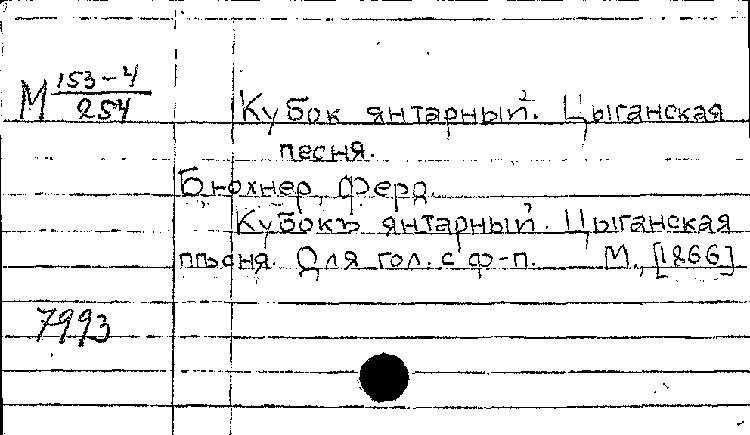 М 153-4/254
Кубок янтарный. Цыганская
песня.
Бюхнер, Ферд.
Кубокъ янтарный. Цыганская
пѣсня. Для гол. с ф-п. М., [1866]
7993